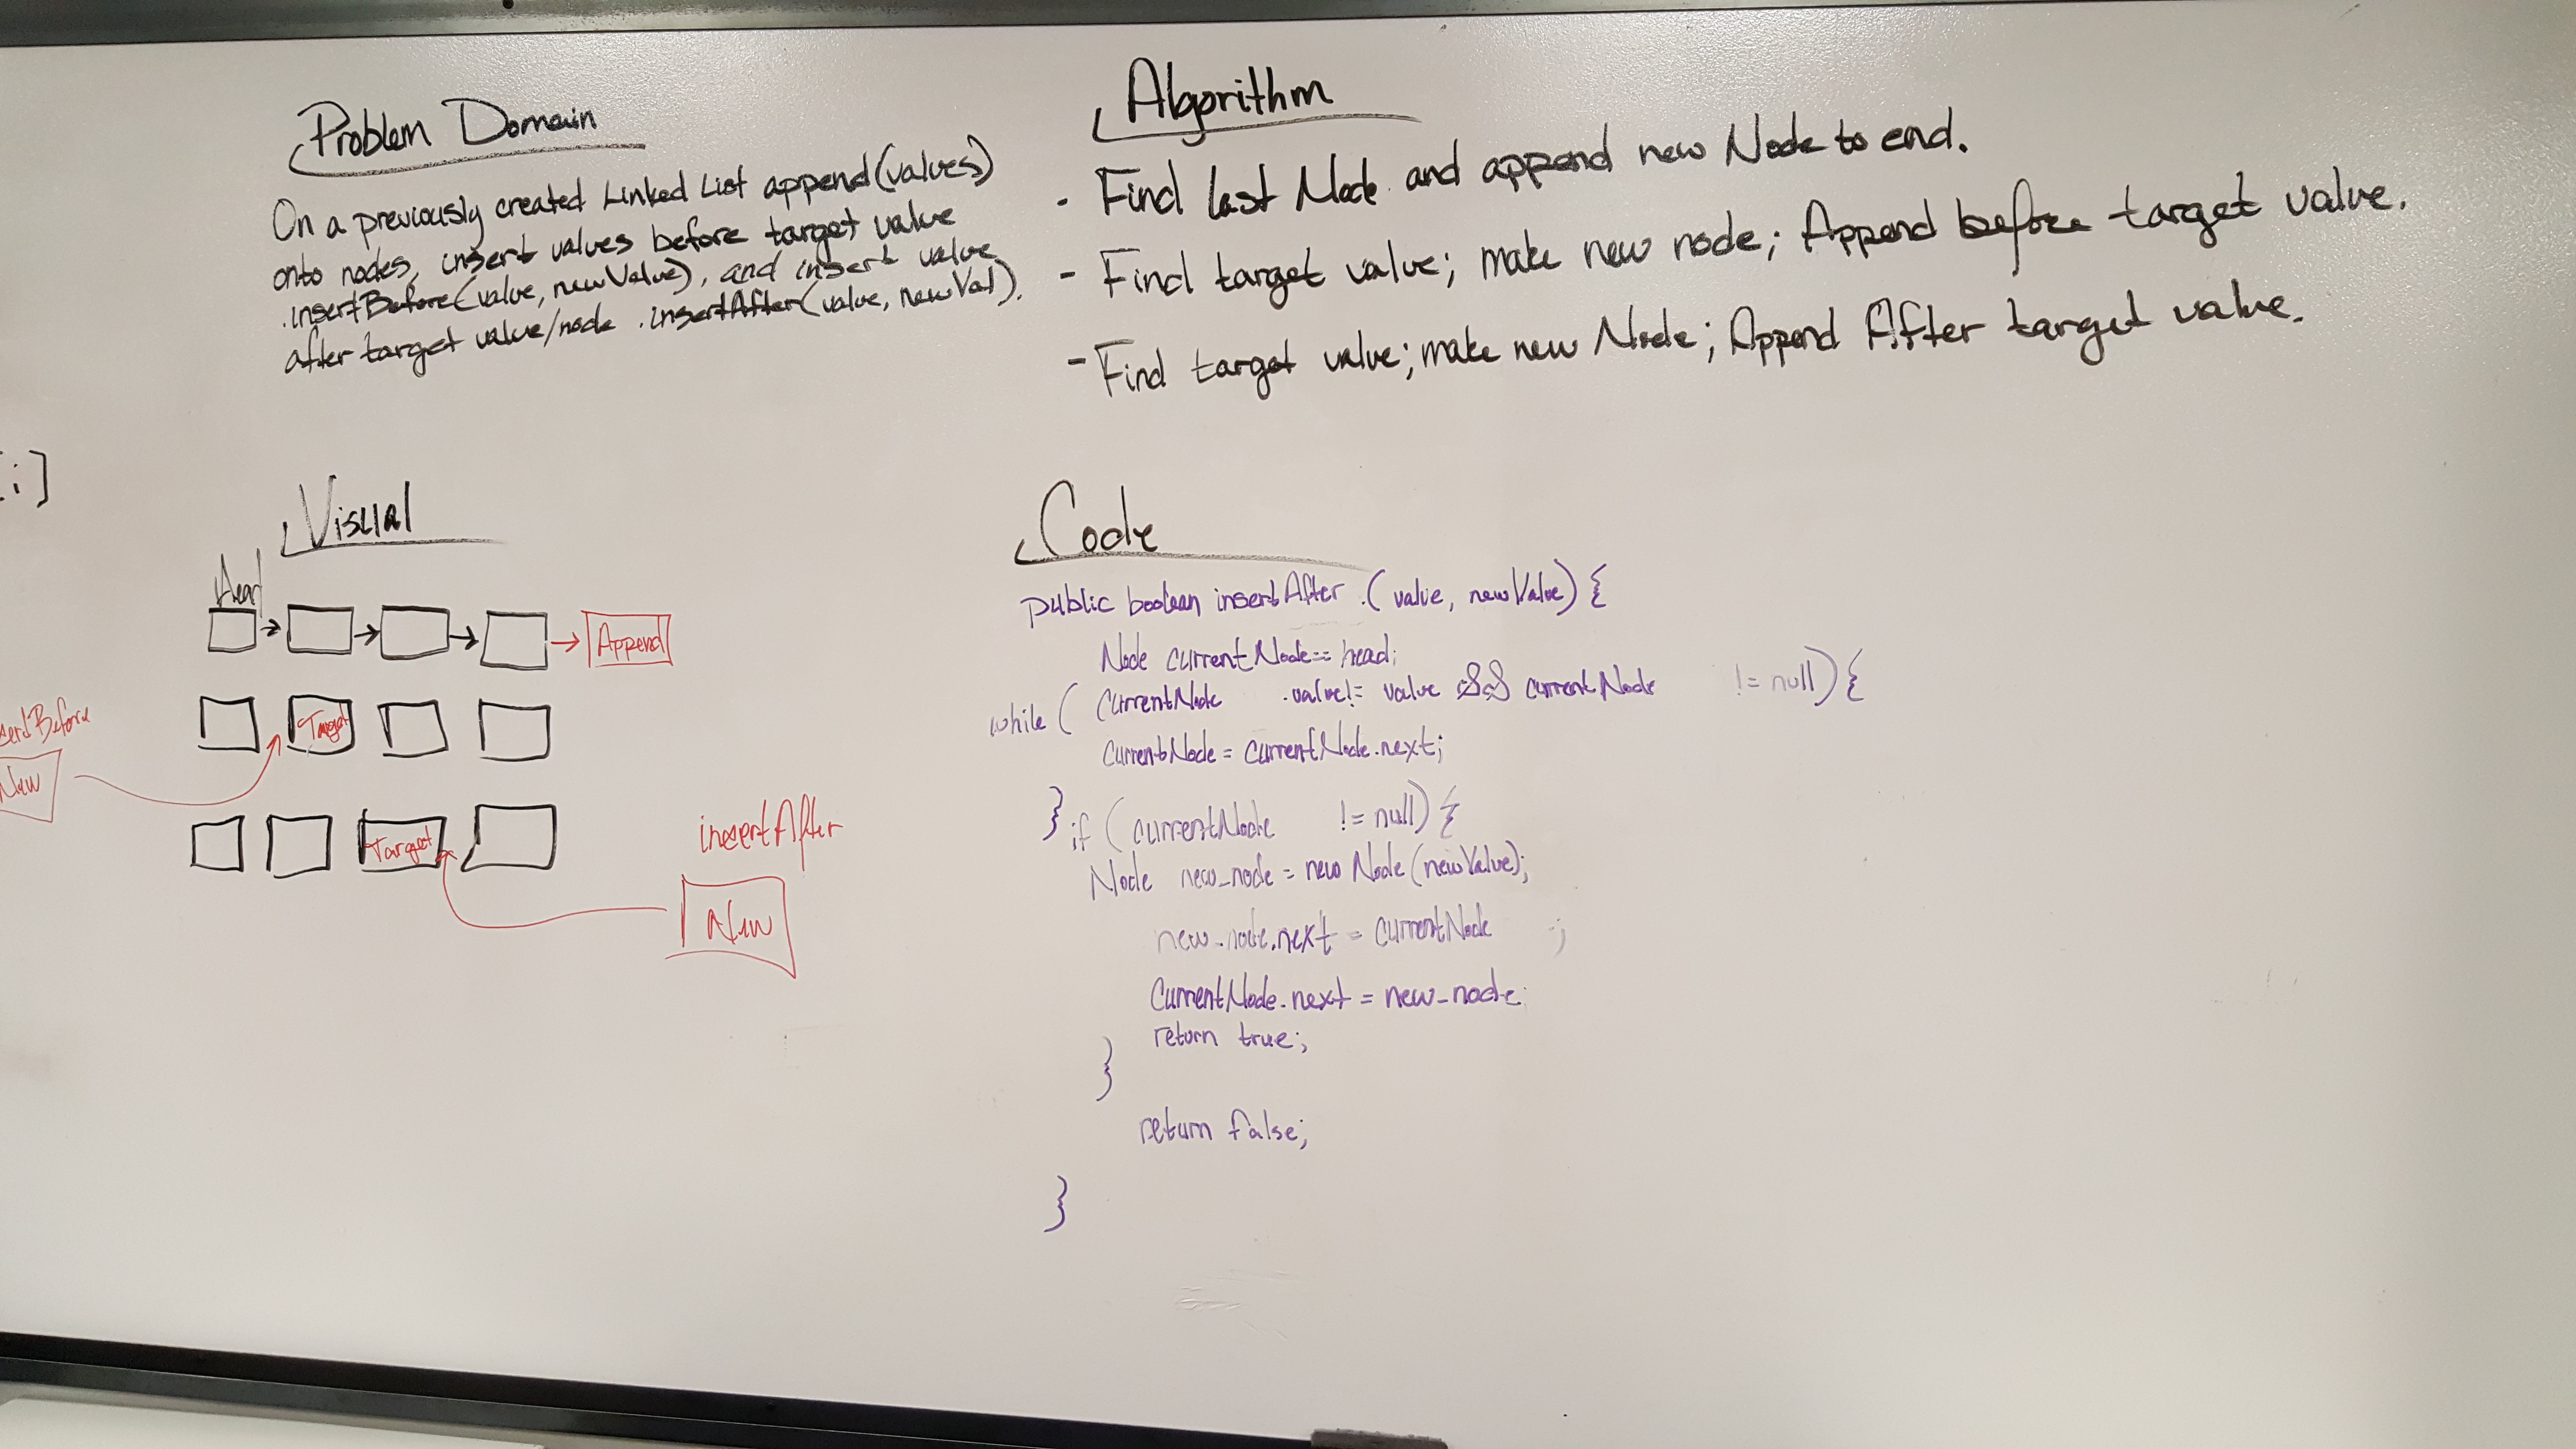 Problem Domain
On a previously created Linked List append(values)
onto nodes, insert values before target value
.insertBefore(value, newValue), and insert value
after target value/node .insertAfter(value, newVal).
Algorithm
- Find last Node and append new Node to end.
- Find target value; make new node; Append before target value.
- Find target value; make new Node; Append After target value.
i]
Visual
Head
Append
Target
New
Target
insertAfter
New
Code
public boolean insertAfter.(value, newValue){
Node currentNode == head;
while ( currentNode .value != value && currentNode != null){
currentNode = currentNode.next;
} if (currentNode != null){
Node new_node = new Node(newValue);
new_node.next = currentNode ;
currentNode.next = new_node
return true;
}
return false;
}